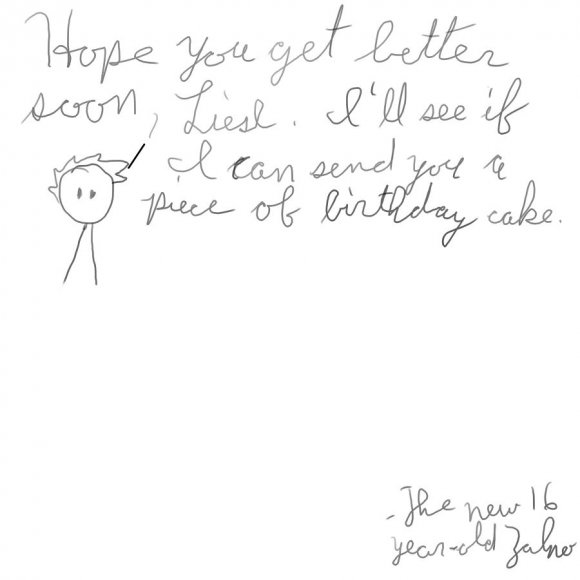 Hope you get better
soon, Liesl. I'll see if
I can send you a
piece of birthday cake.
-The new 16
year-old